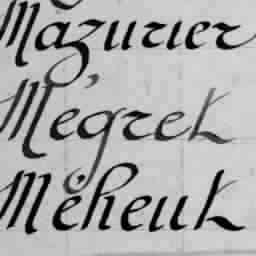 Mazurier
Mégret
Méheut